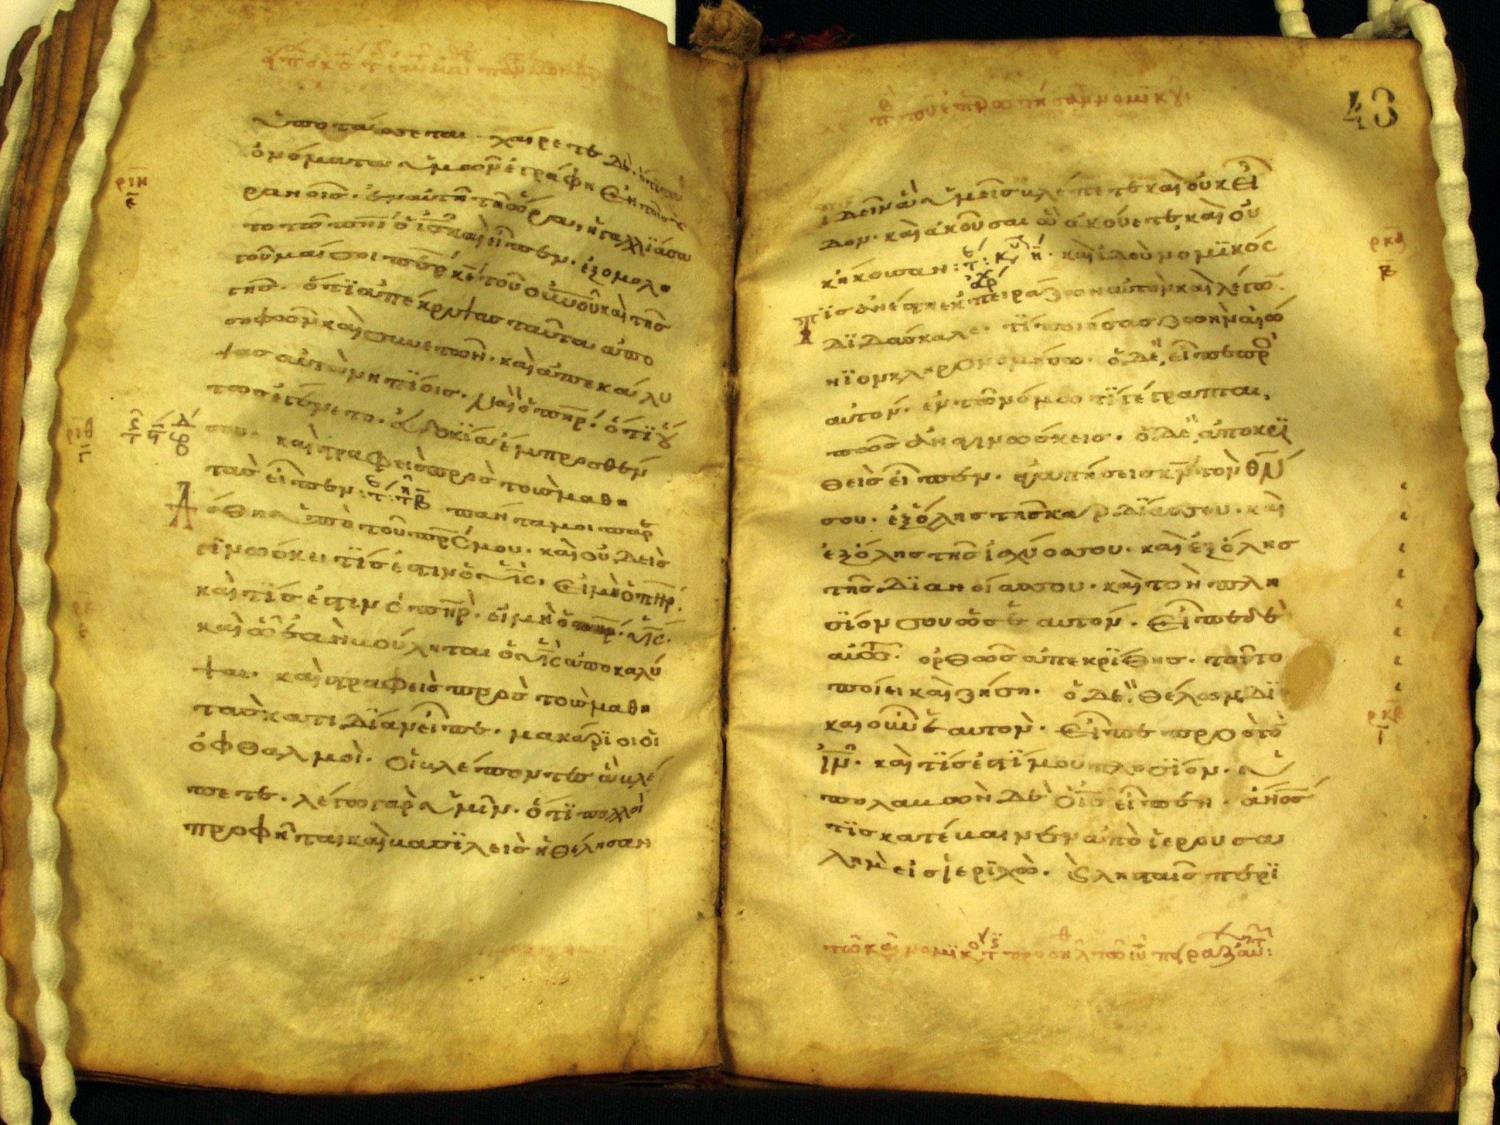 ὑποτάσσεται· χαίρετε δὲ, ὅτι τὰ
ὀνόματα ὑμῶν ἐγράφη ἐν τοῖς οὐ
ρανοῖς· ἐν αὐτῇ τῇ ὥρα, ἠγαλλιάσα
το τῶ πνι ὁ ἰς καὶ εἶπεν· ἐξομολο
γοῦμαί σοι περ κε τοῦ οὐνοῦ καὶ τῆς
γῆς· ὅτι ἀπέκρυψας ταῦτα ἀπο
σοφῶν καὶ συνετῶν· καὶ ἀπεκάλυ
ψας αὐτὰ νηπίοις. ναὶ ὁ πηρ· ὅτι οὕ
τως ἐγένετο εὐδοκία ἔμπροσθέν
σου· καὶ στραφεὶς πρὸς τοὺς μαθη
τὰς εἶπεν: πάντα μοι παρ
εδόθη ὑπὸ τοῦ πρς μου· καὶ οὐδεὶς
γινώσκει τίς ἐστιν ὁ υἱς· εἰ μὴ ὁ πηρ·
καὶ τίς ἐστιν ὁ πηρ· εἰ μὴ ὁ υἱς·
καὶ ὧ ἐὰν βούληται ὁ υἱς ἀποκαλύ
ψαι· καὶ στραφεὶς πρὸς τοὺς μαθη
τὰς κατιδίαν εἶπε· μακάριοι οἱ
ὀφθαλμοὶ· οἱ βλέποντες ἃ βλέ
πετε· λέγω γὰρ ὑμῖν· ὅτι πολλοὶ
προφῆται καὶ βασιλεῖς ἠθέλησαν
43
ἰδεῖν ἃ ὑμεῖς βλέπετε καὶ οὐκ εἶ
δον· καὶ ἀκοῦσαι ἃ ἀκούετε, καὶ οὐ
κ ἤκουσαν: καὶ ἰδοὺ νομικός
τίς ἀνέστη ἐκπειράζων αὐτὸν καὶ λέγω
διδάσκαλε· τί ποιήσας ζωὴν αἰώ
νιον κληρονομήσω· ὁ δὲ, εἶπε πρ
αυτον· ἐν τῶ νόμω τί γέγραπται,
πῶς ἀναγινώσκεις· ὁ δὲ, ἀποκρι
θεὶς εἶπεν· ἀγαπήσεις κν τὸν θν
σου· ἐξ ὅλης τῆς καρδίας σου· καὶ
ἐξ ὅλης τῆς ἰσχύος σου· καὶ ἐξ ὅλης
τῆς διανοίας σου· καὶ τὸν πλη
σίον σου ὡς ἑαυτόν· εἶπε δὲ
αὐτῶ· ὀρθῶς ἀπεκρίθης· τοῦτο
ποίει καὶ ζήση· ὁ δὲ, θέλων δι
καιοῦν ἑαυτὸν· εἶπε πρὸς τὸ
ιν· καὶ τίς ἐστί μου πλησίον· ὑ
πολαβὼν δὲ ὁ ις εἶπεν· ανος
τὶς κατέβαινεν ἀπὸ ἱερουσα
λὴμ εἰς ἱεριχὼ· λησταῖς περι